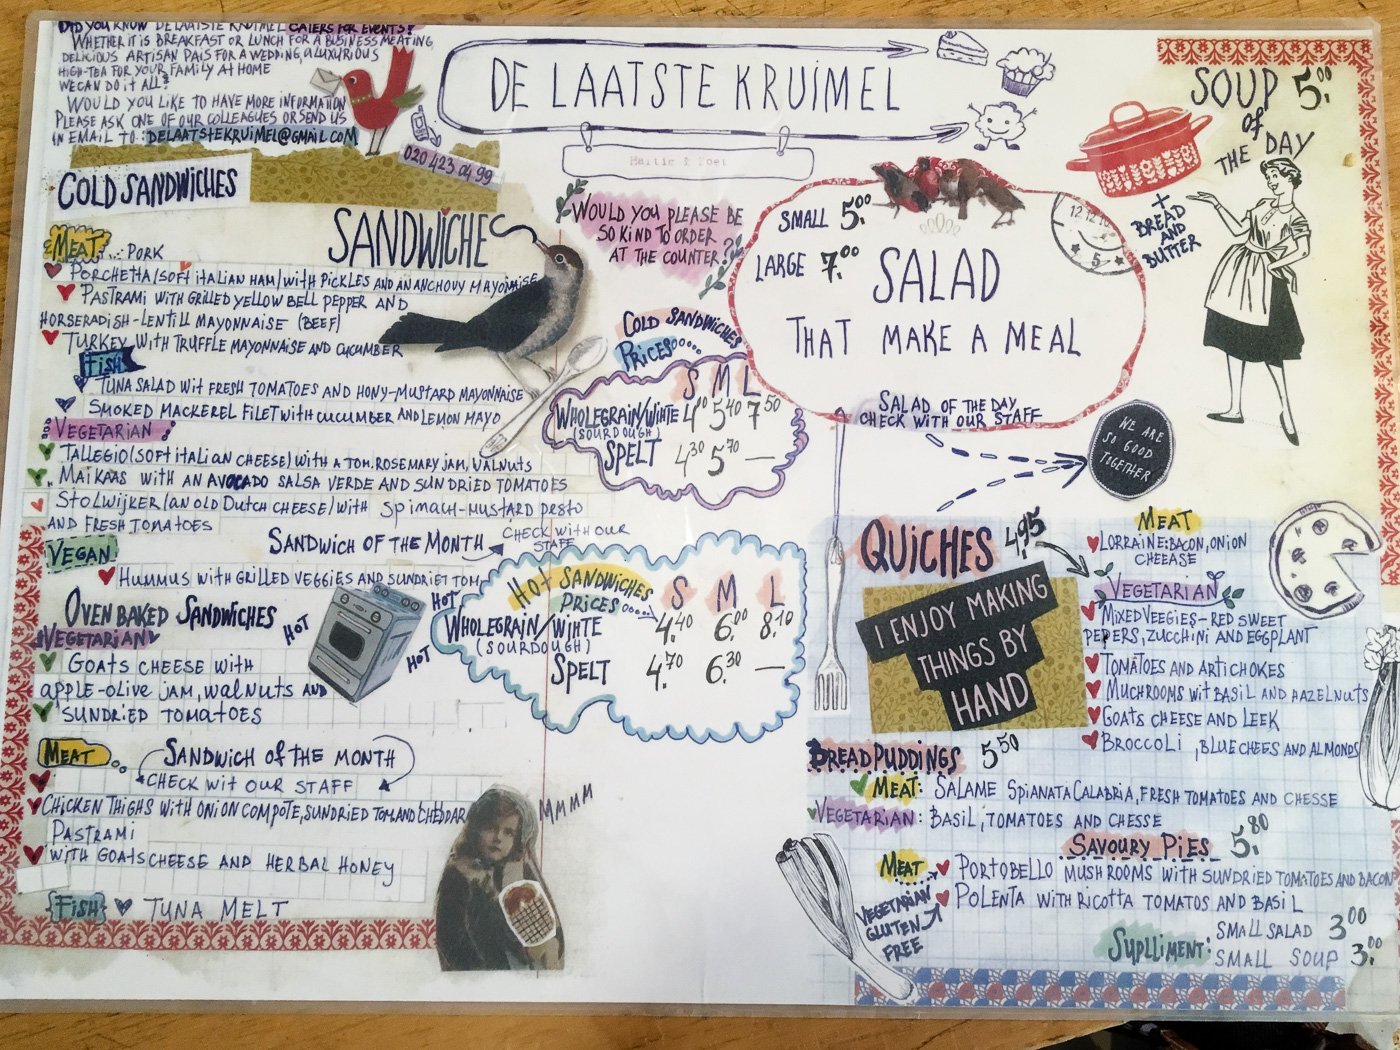 DID YOU KNOW DE LAATSTE KRUIMEL CATERS FOR EVENTS?
WHETHER IT IS BREAKFAST OR LUNCH FOR A BUSINESS MEATING,
DELICIOUS ARTISAN PAIS FOR A WEDDING, A LUXURIOUS
HIGH-TEA FOR YOUR FAMILY AT HOME
WE CAN DO IT ALL?
WOULD YOU LIKE TO HAVE MORE INFORMATION
PLEASE ASK ONE OF OUR COLLEAGUES OR SEND US
IN EMAIL TO: DELAATSTEKRUIMEL@GMAIL.COM
020 423 04 99
DE LAATSTE KRUIMEL
WOULD YOU PLEASE BE
SO KIND TO ORDER
AT THE COUNTER?
COLD SANDWICHES
SANDWICHES
MEAT...: PORK
PORCHETTA (SOFT ITALIAN HAM) WITH PICKLES AND AN ANCHOVY MAYONAISE
PASTRAMI WITH GRILLED YELLOW BELL PEPPER AND
HORSERADISH-LENTILL MAYONNAISE (BEEF)
TURKEY WITH TRUFFLE MAYONNAISE AND CUCUMBER
FISH
TUNA SALAD WIT FRESH TOMATOES AND HONY-MUSTARD MAYONNAISE
SMOKED MACKEREL FILET WITH CUCUMBER AND LEMON MAYO
VEGETARIAN
TALLEGIO (SOFT ITALIAN CHEESE) WITH A TOM. ROSEMARY JAM, WALNUTS
MAIKAAS WITH AN AVOCADO SALSA VERDE AND SUNDRIED TOMATOES
STOLWIJKER (AN OLD DUTCH CHEESE) WITH SPINACH-MUSTARD PESTO
AND FRESH TOMATOES
SANDWICH OF THE MONTH CHECK WITH OUR
STAFF
VEGAN
HUMMUS WITH GRILLED VEGGIES AND SUNDRIET TOM.
OVEN BAKED SANDWICHES
HOT
HOT
HOT
VEGETARIAN
GOATS CHEESE WITH
APPLE-OLIVE JAM, WALNUTS AND
SUNDRIED TOMATOES
MEAT
SANDWICH OF THE MONTH
CHECK WIT OUR STAFF
CHICKEN THIGHS WITH ONION COMPOTE, SUNDRIED TOM. AND CHEDDAR
PASTRAMI
WITH GOATSCHEESE AND HERBAL HONEY
FISH TUNA MELT
MMMM
COLD SANDWICHES
PRICES
S M L
WHOLEGRAIN/WHITE 4.00 5.40 7.50
(SOURDOUGH)
SPELT 4.30 5.70 —
HOT SANDWICHES
PRICES S M L
WHOLEGRAIN/WIHTE 4.40 6.00 8.10
(SOURDOUGH)
SPELT 4.70 6.30 —
SMALL 5.00
LARGE 7.00
SALAD
THAT MAKE A MEAL
SALAD OF THE DAY
CHECK WITH OUR STAFF
SOUP 5.00
OF
THE DAY
+
BREAD
AND
BUTTER
WE ARE
SO GOOD
TOGETHER
QUICHES 4.95
I ENJOY MAKING
THINGS BY
HAND
MEAT
LORRAINE: BACON, ONION
CHEEASE
VEGETARIAN
MIXED VEEGIES - RED SWEET
PEPERS, ZUCCHINI AND EGGPLANT
TOMATOES AND ARTICHOKES
MUCHROOMS WIT BASIL AND HAZELNUTS
GOATS CHEESE AND LEEK
BROCCOLI, BLUE CHEES AND ALMONDS
BREADPUDDINGS 5.50
MEAT: SALAME SPIANATA CALABRIA, FRESH TOMATOES AND CHESSE
VEGETARIAN: BASIL, TOMATOES AND CHESSE
SAVOURY PIES 5.80
MEAT PORTOBELLO MUSHROOMS WITH SUNDRIED TOMATOES AND BACON
POLENTA WITH RICOTTA TOMATOS AND BASIL
VEGETARIAN
GLUTEN
FREE
SUPLLIMENT: SMALL SALAD 3.00
SMALL SOUP 3.00